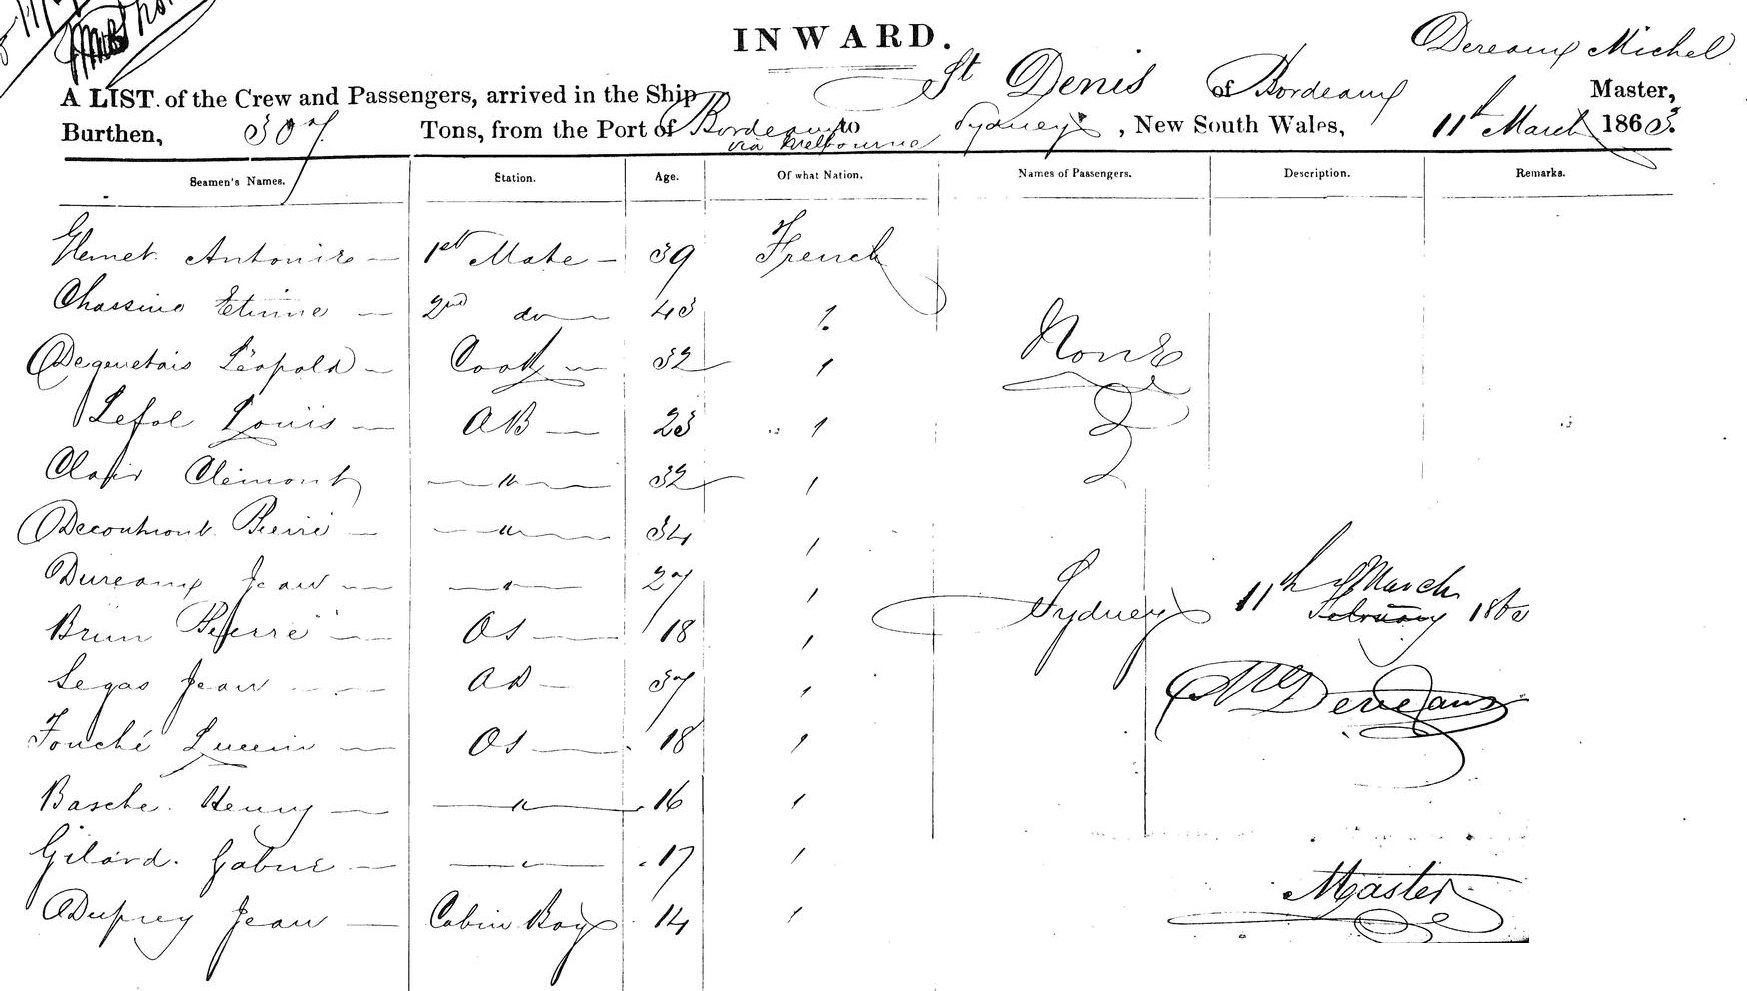 INWARD.
Dereaux Michel
A LIST of the Crew and Passengers, arrived in the Ship St Denis of Bordeaux Master,
Burthen, 307 Tons, from the Port of Bordeaux to Sydney, New South Wales, 11th March 1863.
via Melbourne
Seamen's Names. Station. Age. Of what Nation. Names of Passengers. Description. Remarks.
Antoine — 1st Mate — 39 French
Chassino Etinne — 2nd do — 43 "
None
Deguetais Léopold — Cook — 32 "
Lefol Louis — AB — 23 "
Clair Clémont — " — 32 "
Decoutmont Pierre — " — 34 "
Dureaux Jean — " — 27 "
Sydney 11th March February 1863
Brun Pierre — OS — 18 "
Segas Jean — AB — 37 "
M Dereaux
Fouché Lucein — OS — 18 "
Basche. Henry — " — 16 "
Gilard. Gabrie — " — 17 "
Master
Duprey Jean — Cabin Boy 14 "